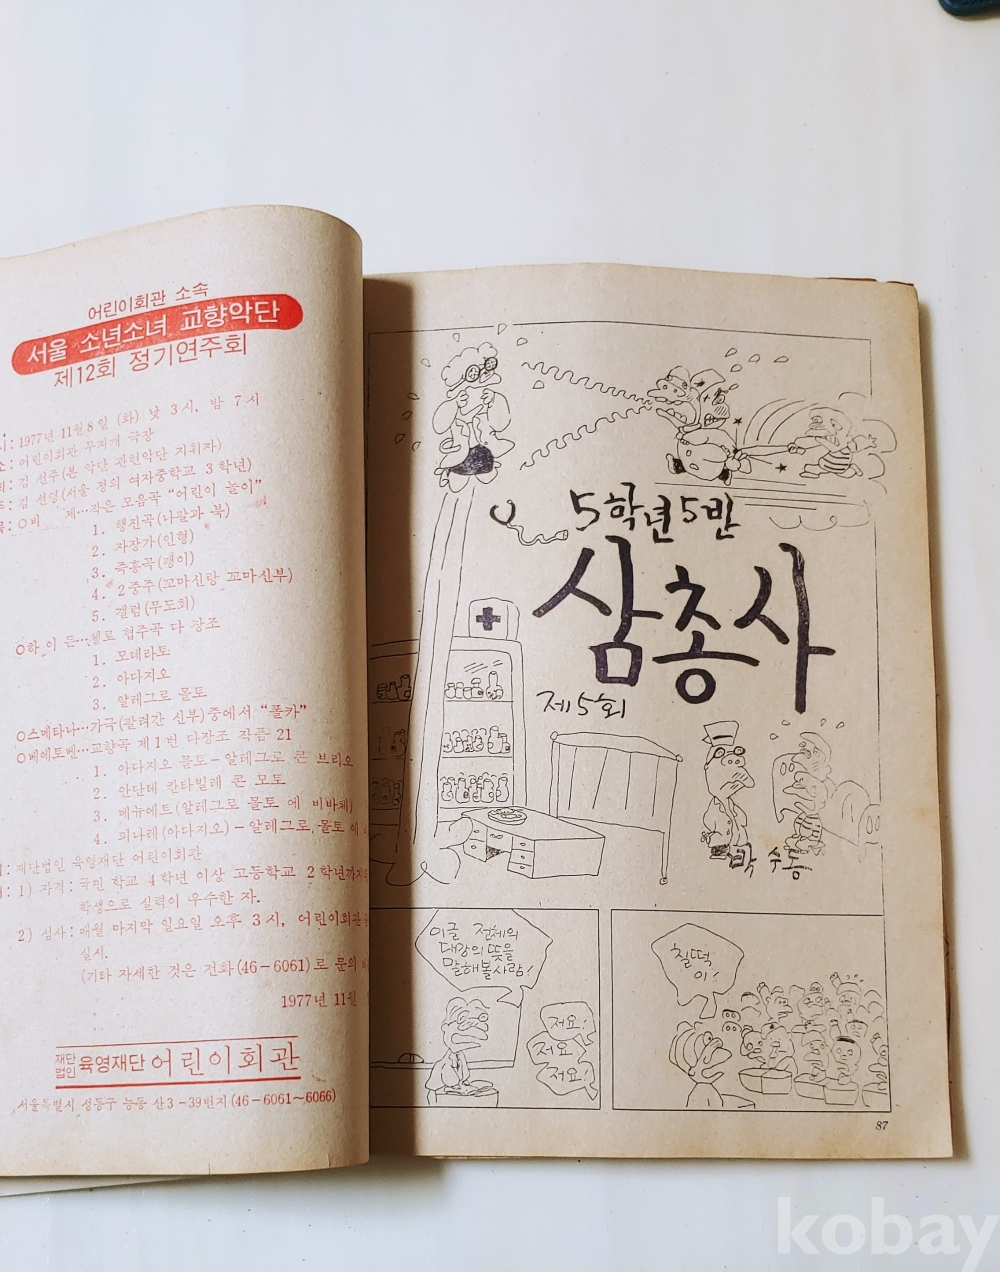 어린이회관 소속
서울 소년소녀 교향악단
제12회 정기연주회
시: 1977년 11월 8일 (화) 낮 3시, 밤 7시
소: 어린이회관 무지개 극장
휘: 김 선주(본 악단 관현악단 지휘자)
김 선영(서울 정의 여자중학교 3학년)
목: ○비 제…작은 모음곡 "어린이 놀이"
1. 행진곡(나팔과 북)
2. 자장가(인형)
3. 즉흥곡(팽이)
4. 2중주(꼬마신랑 꼬마신부)
5. 갤럽(무도회)
○하이든…첼로 협주곡 다 장조
1. 모데라토
2. 아다지오
3. 알레그로 몰토
○스메타나…가극(팔려간 신부)중에서 "폴카"
○베에토벤…교향곡 제1번 다장조 작품 21
1. 아다지오 몰토-알레그로 콘 브리오
2. 안단테 칸타빌레 콘 모토
3. 메뉴에트(알레그로 몰토 에 비바체)
4. 피나레(아다지오)-알레그로 몰토 에
최: 재단법인 육영재단 어린이회관
1) 자격: 국민 학교 4학년 이상 고등학교 2학년까지
학생으로 실력이 우수한 자.
2) 심사: 매월 마지막 일요일 오후 3시, 어린이회관
실시.
(기타 자세한 것은 전화(46-6061)로 문의
1977년 11월
재단법인 육영재단 어린이회관
서울특별시 성동구 능동 산3-39번지(46-6061~6066)
5학년5반
삼총사
제5회
박수동
이글 전체의
대강의 뜻을
말해볼사람!
저요!
저요
저요!
칠떡
이!
87
kobay